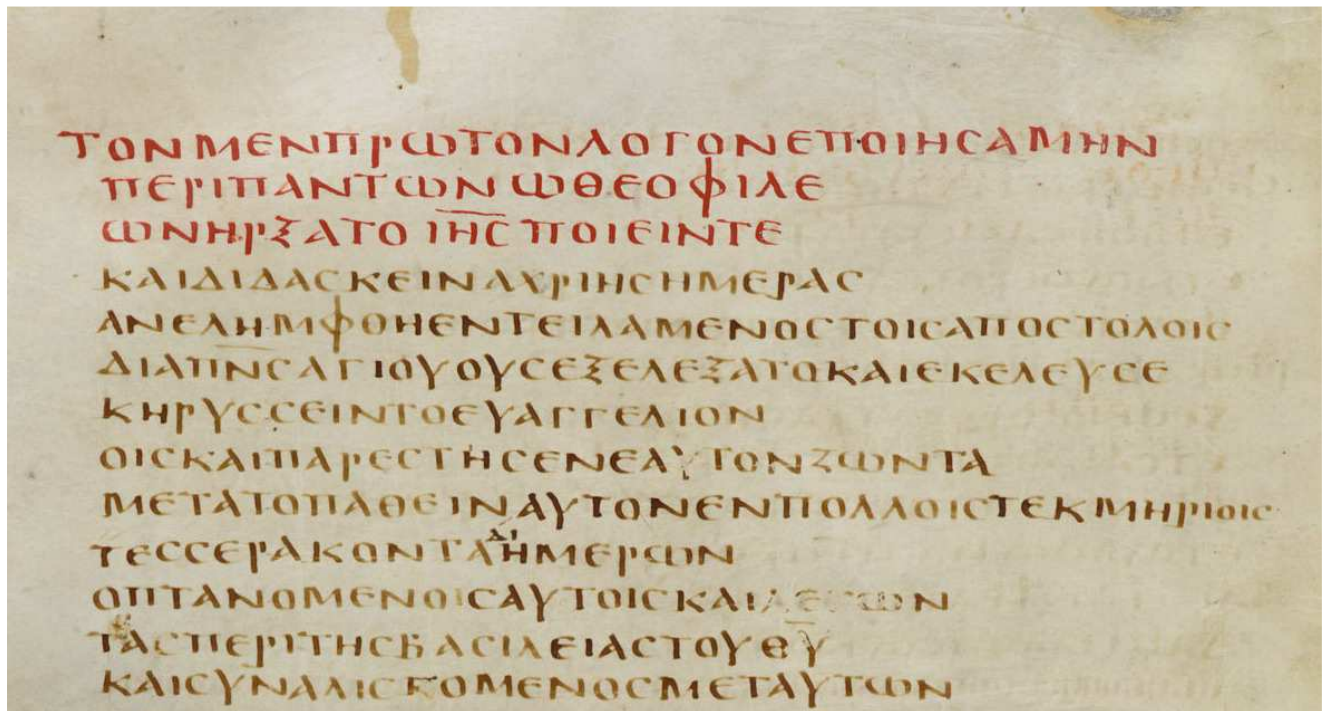 ΤΟΝΜΕΝΠΡΩΤΟΝΛΟΓΟΝΕΠΟΙΗСΑΜΗΝ
ΠΕΡΙΠΑΝΤΩΝΩΘΕΟΦΙΛΕ
ΩΝΗΡΞΑΤΟΙΗ̅С̅ΠΟΙΕΙΝΤΕ
ΚΑΙΔΙΔΑСΚΕΙΝΑΧΡΙΗСΗΜΕΡΑС
ΑΝΕΛΗΜΦΘΗΕΝΤΕΙΛΑΜΕΝΟСΤΟΙСΑΠΟСΤΟΛΟΙС
ΔΙΑΠ̅Ν̅С̅ΑΓΙΟΥΟΥСΕΞΕΛΕΞΑΤΟΚΑΙΕΚΕΛΕΥСΕ
ΚΗΡΥССΕΙΝΤΟΕΥΑΓΓΕΛΙΟΝ
ΟΙСΚΑΙΠΑΡΕСΤΗСΕΝΕΑΥΤΟΝΖΩΝΤΑ
ΜΕΤΑΤΟΠΑΘΕΙΝΑΥΤΟΝΕΝΠΟΛΛΟΙСΤΕΚΜΗΡΙΟΙС
ΤΕССΕΡΑΚΟΝΤΑΗΜΕΡΩΝ
ΟΠΤΑΝΟΜΕΝΟΙСΑΥΤΟΙСΚΑΙΛΕΓΩΝ
ΤΑСΠΕΡΙΤΗСΒΑСΙΛΕΙΑСΤΟΥΘ̅Υ̅
ΚΑΙСΥΝΑΛΙСΚΟΜΕΝΟСΜΕΤΑΥΤΩΝ